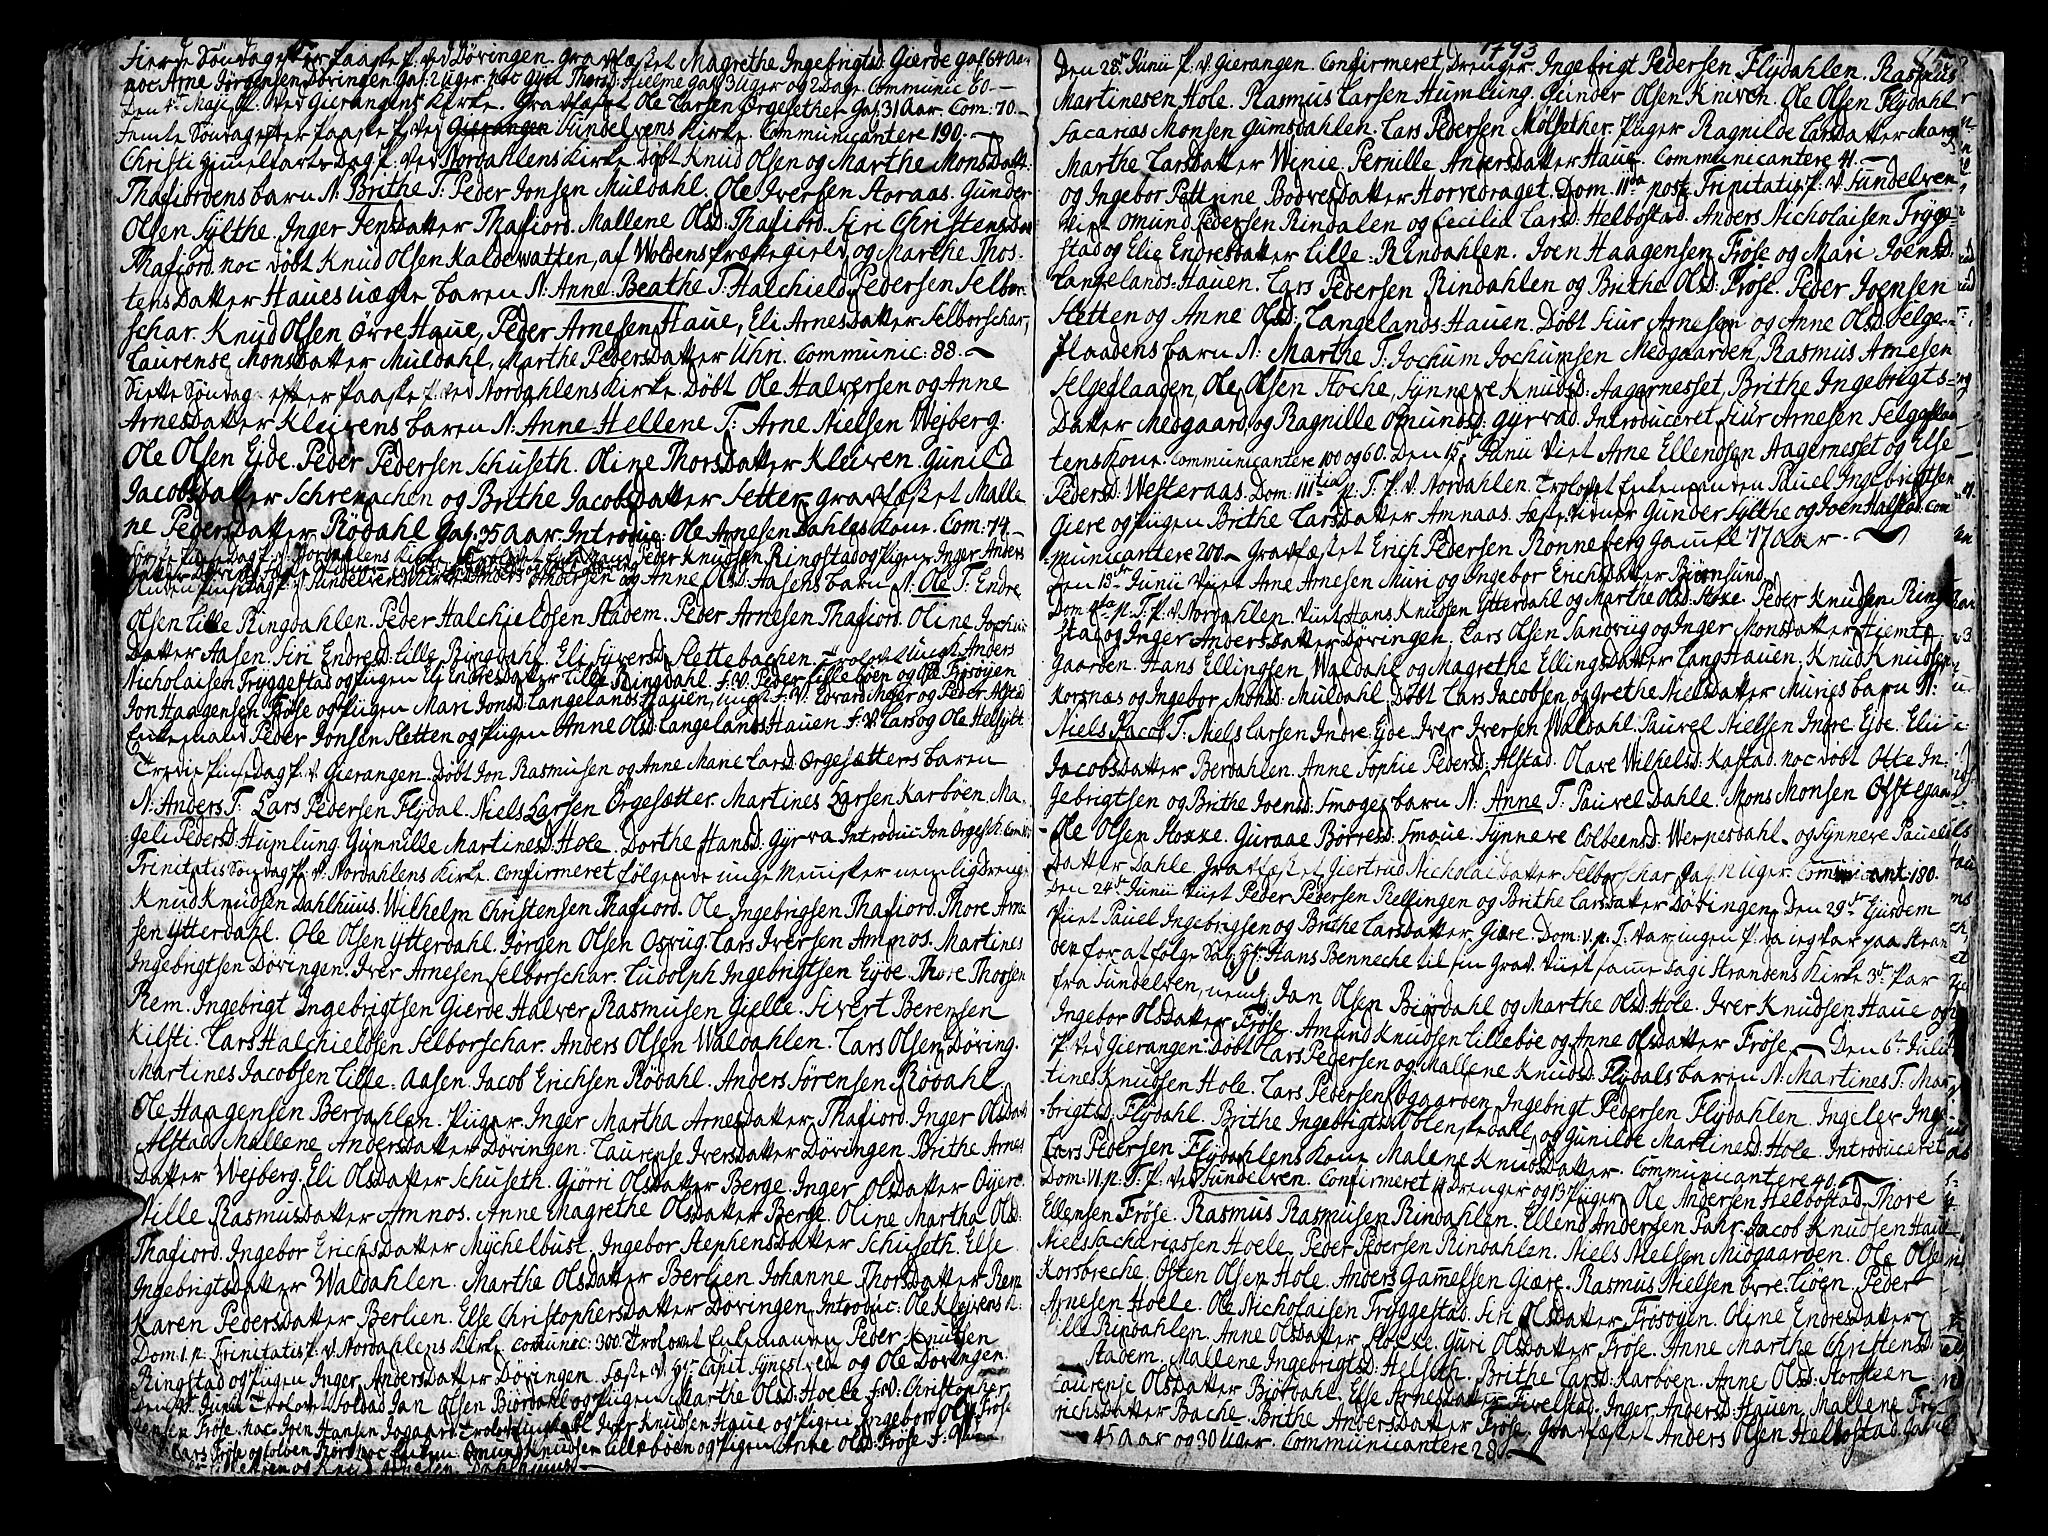 Fierde Söndag efter Paaske P. ved Dövingen. Gravfæstet Magrethe Ingebrigtsd. Gierde gal. 64 Aar
noc Arne Jörgensen Dövingen Gal. 2 Uger noc Thorsd: Hielme Gal. 3 Uger og 2 Dage. Communic 60.
Den 4de Maji P. ved Gierangens Kirke. Gravfæstet Ole Larsen Örgesether Gal. 31 Aar. Com: 70.
Femte Söndag efter Paaske P. ved Sundelvens Kirke. Communicantere 190.
Christi Himelfarts Dag P. ved Nordahlens Kirke. Döbt Knud Olsen og Marthe Monsdatt.
Thafiordens barn N. Brithe T: Peder Jonsen Muldahl. Ole Iversen Storaas. Gunder
Olsen Sylthe. Inger Jensdatter Thafiord. Mallene Olsd: Thafiord. Siri Christensda
Thafiord. noc döbt Knud Olsen Kaldevatten, af Woldens Præstegield, og Marthe Thos-
tensdatter Haues uægte barn N: Anne Beathe T: Halchield Pedersen Selbor-
schar. Knud Olsen Övre Haue, Peder Arnesen Haue, Eli Arnesdatter Selborschar,
Laurense Monsdatter Muldahl, Marthe Pedersdatter Uhri. Communic: 88.
Siette Söndag efter Paaske P. ved Nordahlens Kirke. Döbt Ole Halversen og Anne
Arnesdatter Kleivens barn N: Anne Hellene T: Arne Nielsen Wejberg.
Ole Olsen Ejde. Peder Pedersen Schuseth. Oline Thorsdatter Kleiven. Gunild
Jacobsdatter Schrenachen og Brithe Jacobsdatter Setter. Gravfæstet Malle
ne Pedersdatter Rödahl Gal. 35 Aar. Introduc: Ole Arnesen Dahles Kone. Com: 74.
Nordahlens Kirke Trolovet Peder Knudsen Ringstad og Pigen Inger Anders
Anden Pinsedag P. v. Sundelvens Kirke Anders Thorsen og Anne Olsd: Aasens barn N: Ole T: Endre
Olsen Lille Ringdahlen. Peder Halchieldsen Stadem. Peder Arnesen Thafiord. Oline Jochu
Datter Aasen. Siri Endresd: Lille Ringdahl. Eli Syversd. Slettebachen. Trolovet Anders
Nicholaisen Tryggestad og Pigen Eli Endresdatter Lille Ringdahl. F. V. Peder Lilleböen og Ole Frösöyen
Jon Haagensen Fröse og Pigen Mari Jonsd. Langelands Hauen,
Enkemand Peder Jonsen Sletten og Pigen Anne Olsd: Langelands Hauen F. V. Lars og Ole
Tredie Pinsedag P. v. Gierangen. Döbt Jon Rasmusen og Anne Marie Larsd. Örgesætters barn
N: Anders T: Lars Pedersen Flydal. Niels Larsen Örgesætter. Martines Larsen Karböen. Ma-
geli Pedersd: Humlung. Gunnille Martinesd: Hole. Dorthe Hansd: Gyrva. Introduc
Trinitatis Söndag P. v. Nordahlens Kirke. Confirmeret fölgende unge Menisker nemlig dreng
Knud Knudsen Dahlhuus. Wilhelm Christensen Thafiord. Ole Ingebrigsen Thafiord. Thore Arne
sen Ytterdahl. Ole Olsen Ytterdahl. Jörgen Olsen Osvüg. Lars Iversen Amnos. Martines
Ingebrigtsen Dövingen. Iver Arnesen Selborschar. Ludolph Ingebrigtsen Ejde. Thore Thorsen
Rem. Ingebrigt Ingebrigtsen Gierde. Halver Rasmusen Gielle. Sivert Berensen
Kilsti. Lars Halchieldsen Selborschar. Anders Olsen Waldahlen. Lars Olsen Döving.
Martines Jacobsen Lille-Aasen. Jacob Erichsen Rödahl. Anders Sörensen Rödahl.
Ole Haagensen Berdahlen. Piiger. Inger Martha Arnesdatter Thafiord. Inger Olsdatt
Alstad. Mallene Andersdatter Dövingen. Laurense Iversdatter Dövingen. Brithe Arnes
Datter Wejberg. Eli Olsdatter Schuseth. Giörri Olsdatter Berge. Inger Olsdatter
Nille Rasmusdatter Amnos. Anne Magrethe Olsdatter Berge. Oline Martha Olsd:
Thafiord. Ingebor Erichsdatter Mychelbust. Ingebor Stephensdatter Schuseth. Else
Ingebrigtsdatter Waldahlen. Marthe Olsdatter Berlien. Johanne Thorsdatter Rem
Karen Pedersdatter Berlien. Else Christophersdatter Dövingen. Introduc: Ole Klejvens K:
Dom: 1. p. Trinitatis P. v. Nordahlens Kirke. Comunic: 300. Trolovet Enkemanden Peder Knudsen
Ringstad og Pigen Inger Andersdatter Dövingen. og Ole Dövingen.
Trolovet Soldad Jan Olsen Biördahl og Pigen Marthe Olsd: Hoele F: V: Christopher
Fröse. noc Iver Knudsen Haue og Pigen Ingebor Olsd. Fröse
og Pigen Anne Olsd: Fröse
1793
Den 28de Junii P. v. Gierangen. Confirmeret Drenger Ingebrigt Pedersen Flydahlen. Rasmus
Martinesen Hole. Rasmus Larsen Humlung. Gunder Olsen Kniven. Ole Olsen Flydahl
Sacarias Monsen Gumsdahlen. Lars Pedersen Molsether. Piiger Ragnilde Larsdatter
Marthe Larsdatter Winie. Pernille Andersdatter Haue. Communicantere 41.
og Ingebor Petterine Bodvedsdatter Horvedraget. Dom. IIda post Trinitatis P. v. Sundelven
Viet Omund Pedersen Rindalen og Cecilia Larsd. Helbostad. Anders Nicholaisen Trygge-
stad og Elie Endresdatter Lille Rindahlen. Joen Haagensen Fröse og Mari Joensd:
Langelands-Hauen. Lars Pedersen Rindahlen og Brithe Olsd: Fröse. Peder Joensen
Sletten og Anne Olsd: Langelands Hauen. Döbt Siur Arnesen og Anne Olsd. Selge-
flaadens barn N: Marthe T: Jochum Jochumsen Medgaarden, Rasmus Arnesen
Selgeflaaden, Ole Olsen Stoche, Synneve Knudsd: Aagernesset, Brithe Ingebrigts-
Datter Medgaard, og Ragnille Omundsd: Gyrvad. Introduceret Siur Arnesen Selgeflaa
tens Kone. Communicantere 100 og 60. Den 15de Junii Viet Arne Ellendsen Aagernesset og Else
Pedersd. Westeraas. Dom: IIItia p. T. P. v. Nordahlen. Trolovet Enkemanden Pauel Ingebrigtsen
Giere og Piigen Brithe Larsdatter Amnaas. Gunder Sylthe og Iven Halstad. Com
municantere 200. Gravfæstet Erich Pedersen Ronneberg Gammel 77 Aar.
Den 15de Junii Viet Arne Arnesen Muri og Ingebor Erichsdatter Biörnsund
P. v. Nordahlen. Viet Hans Knudsen Ytterdahl og Marthe Olsd: Stoxe. Peder Knudsen Ring
stad og Inger Andersdatter Dövingen. Lars Olsen Sandviig og Inger Monsdatter Hiemte
Gaarden. Hans Ellingsen Waldahl og Magrethe Ellingsdatter Lang Hauen. Knud Knudsen
Korsnæs og Ingebor Monsd: Muldahl. Döbt Lars Jacobsen og Grethe Nielsdatter Muries barn N:
Niels Jacob T: Niels Larsen Indre Ejde. Iver Iversen Waldahl. Pauvel Nielsen Indre Ejde. Eli
Jacobsdatter Berdahlen. Anne Sophie Pedersd: Alstad. Olave Wilhelmsd: Kastad. noc döbt Otte In-
gebrigtsen og Brithe Joensd: Smoges barn N: Anne T: Pauvel Dahle. Mons Monsen
Ole Olsen Stoxe. Guraae Börresd: Smoue. Synneve Colbeensd: Werpesdahl og Synneve Pauels
Datter Dahle. Gravfæstet Giertrud Nicholaidatter Selborschar Gal. 12 Uger. Communicant: 180.
Den 24de Junii Viet Peder Pedersen Rellingen og Brithe Larsdatter Dövingen. Den 29de Ejusdem
Viet Pauel Ingebrigtsen og Brithe Larsdatter Giære. Dom: V. p. T. Var ingen P. da jeg var paa Stran
den for at fölge Sal. Hr: Hans Benneche til sin Grav. Viet samme Dag i Strandens Kirke 3de Par
fra Sundelven, neml. Jan Olsen Biördahl og Marthe Olsd: Hole. Iver Knudsen Haue og
Ingebor Olsdatter Fröse. Amund Knudsen Lilleböe og Anne Olsdatter Fröse. Den 6te Julii
P. ved Gierangen. Döbt Lars Pedersen og Mallene Knudsd: Flydals barn N: Martines T: Mar
tines Knudsen Hole. Lars Pedersen Ogaarden. Ingebrigt Pedersen Flydahlen. Ingeler Inge
brigtsd: Flydahl. Brithe Ingebrigtsd: Oplenskedahl, og Gunilde Martinesd: Hole. Introduceret
Lars Pedersen Flydahlens Kone Malene Knudsdatter. Communicantere 40.
Dom: VI p. T. P. ved Sundelven. Confirmeret Drenger og 13 Piiger. Ole Andersen Helbostad. Thore
Ellensen Fröse. Rasmus Rasmusen Rindahlen. Ellend Andersen Fahr. Jacob Knudsen Haue
Niels Sachariassen Hoele. Peder Pedersen Rindahlen. Niels Nielsen Midgaarden. Ole Olsen
Korsbreche. Osten Olsen Hole. Anders Gamelsen Giære. Rasmus Nielsen Övre-Liöen. Peder
Arnesen Hoele. Ole Nicholaisen Tryggestad. Siri Olsdatter Frösöyen. Oline Endresdatter
Lille Rindahlen. Anne Olsdatter Stoxe. Guri Olsdatter Fröse. Anne Marthe Christensd:
Stadem. Mallene Ingebrigtsd: Helseth. Brithe Larsd: Karböen. Anne Olsd: Storsteen
Laurense Olsdatter Biördahl. Else Arnesdatter Fivelstad. Inger Andersd: Hauen. Mallene
richsdatter Bache. Brithe Andersdatter Fröse. Gravfæstet Anders Olsen Helbostad. Gaml
45 Aar og 30 Uger. Communicantere 28